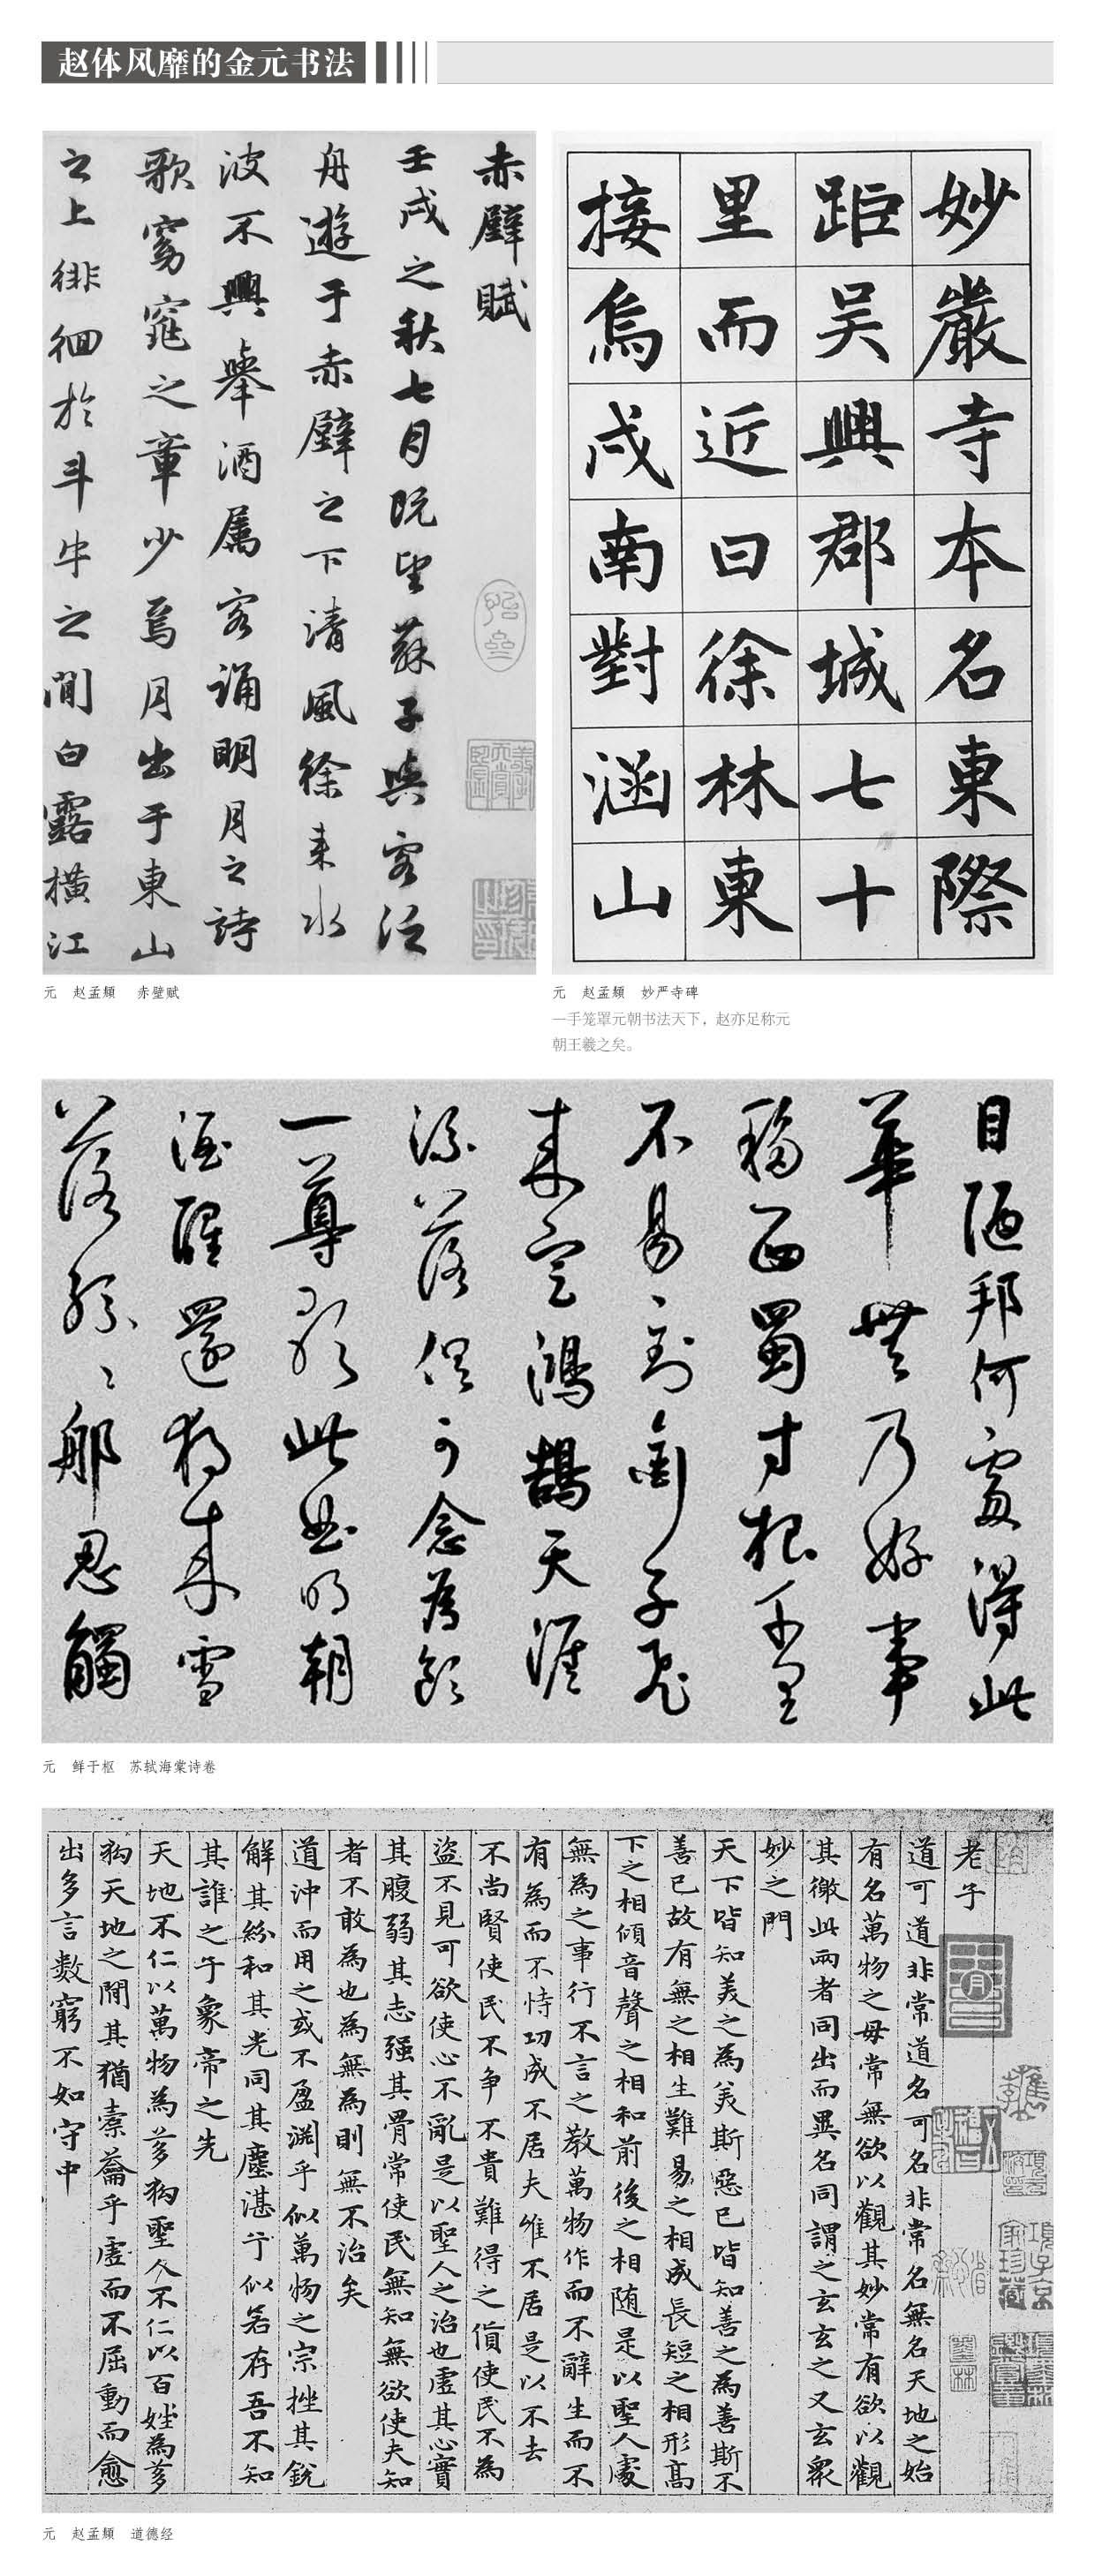 赵体风靡的金元书法
赤壁賦
壬戌之秋七月既望蘇子與客泛
舟遊于赤壁之下清風徐来水
波不興舉酒属客誦明月之詩
歌窈窕之章少焉月出于東山
之上徘徊於斗牛之間白露横江
元 赵孟頫 赤壁赋
妙嚴寺本名東際
距吴興郡城七十
里而近曰徐林東
接烏戍南對涵山
元 赵孟頫 妙严寺碑
一手笼罩元朝书法天下，赵亦足称元
朝王羲之矣。
目陋邦何處得此
華無乃好事
移西蜀寸根千里
不易到銜子飛
来定鴻鵠天涯
流落俱可念為飲
一尊歌此曲明朝
酒醒還獨来雪
落紛〻那忍觸
元 鲜于枢 苏轼海棠诗卷
老子
道可道非常道名可名非常名無名天地之始
有名萬物之母常無欲以觀其妙常有欲以觀
其徼此兩者同出而異名同謂之玄玄之又玄衆
妙之門
天下皆知美之為美斯惡已皆知善之為善斯不
善已故有無之相生難易之相成長短之相形高
下之相傾音聲之相和前後之相随是以聖人處
無為之事行不言之教萬物作而不辭生而不
有為而不恃功成不居夫惟不居是以不去
不尚賢使民不争不貴難得之貨使民不為
盜不見可欲使心不亂是以聖人之治也虚其心實
其腹弱其志强其骨常使民無知無欲使夫知
者不敢為也為無為則無不治矣
道沖而用之或不盈淵乎似萬物之宗挫其銳
解其紛和其光同其塵湛兮似若存吾不知
其誰之子象帝之先
天地不仁以萬物為芻狗聖人不仁以百姓為芻
狗天地之間其猶橐籥乎虚而不屈動而愈
出多言數窮不如守中
元 赵孟頫 道德经